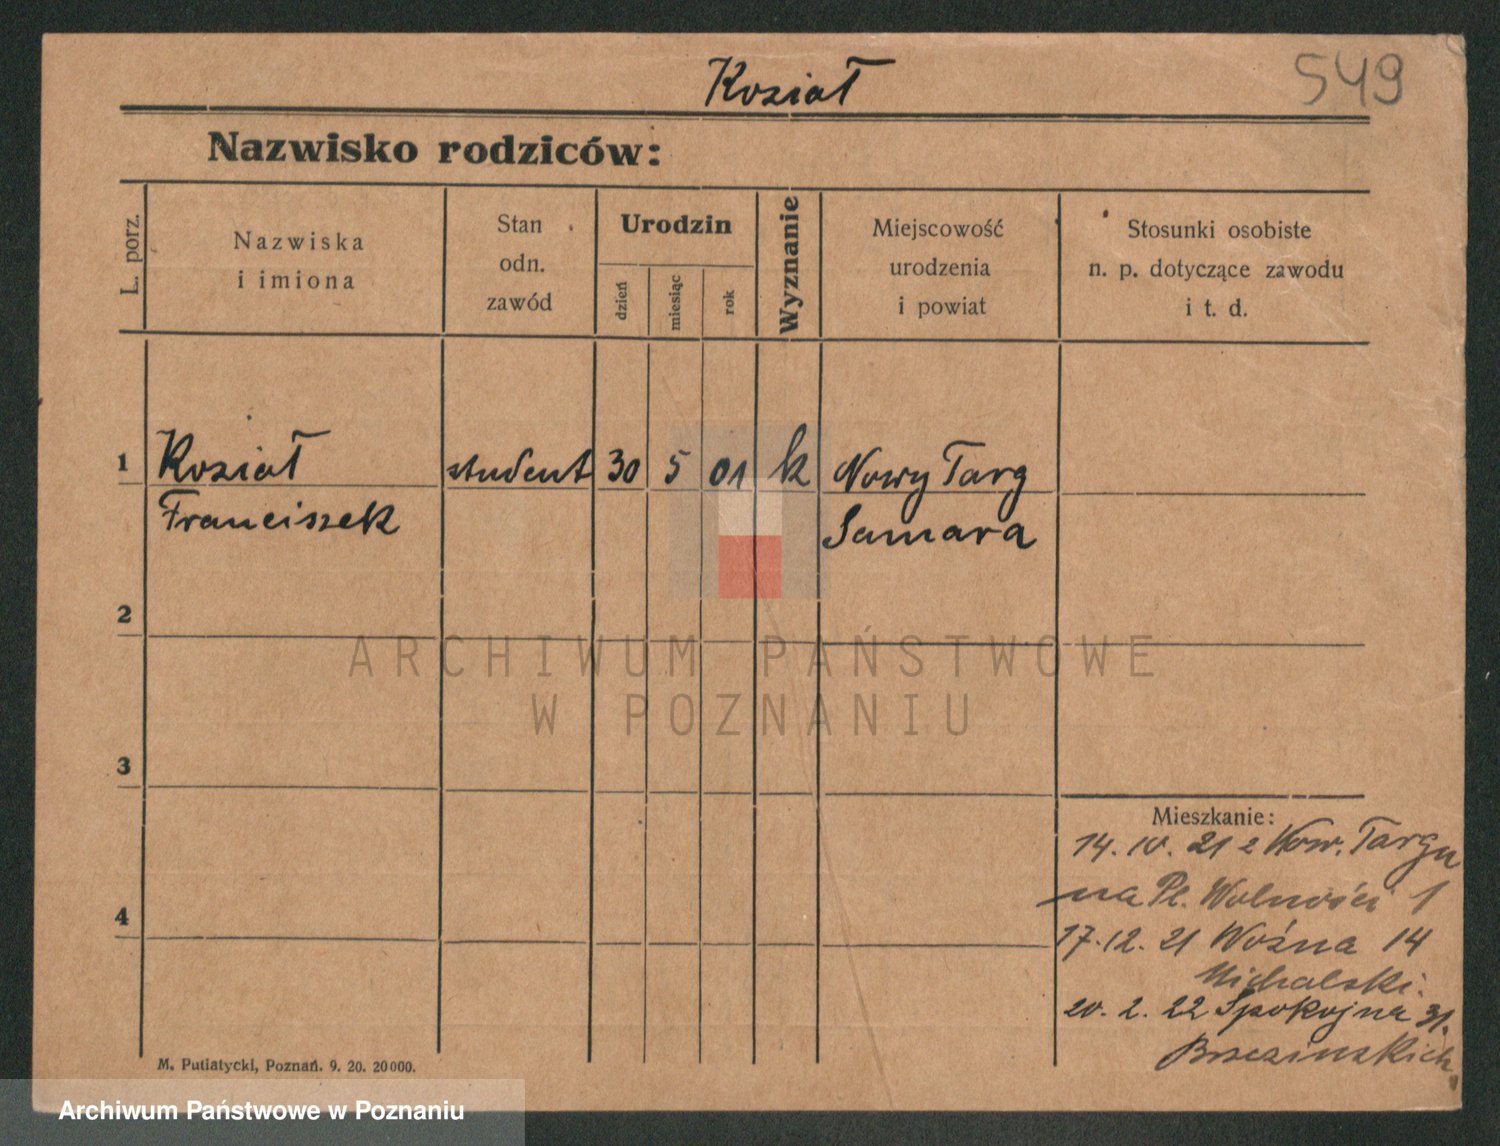 Kozioł
549
Nazwisko rodziców:
L. porz.
Nazwiska
i imiona
Stan
odn.
zawód
Urodzin
dzień
miesiąc
rok
Wyznanie
Miejscowość
urodzenia
i powiat
Stosunki osobiste
n. p. dotyczące zawodu
i t. d.
1 Kozioł student 30 5 01 k Nowy Targ
Franciszek Samara
2
ARCHIWUM PAŃSTWOWE
W POZNANIU
3
4
Mieszkanie:
14. 10. 21 z Now. Targu
na Pl. Wolności 1
17. 12. 21 Woźna 14
Michalski.
20. 2. 22 Spokojna 31.
Brzezinskich
M. Putiatycki, Poznań. 9. 20. 20000.
Archiwum Państwowe w Poznaniu